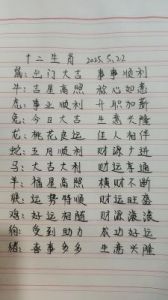 十二生肖 2025.5.22
鼠:出门大吉 事事顺利
牛:吉星高照 放心如意
虎:事业顺利 升职加薪
兔:今日大吉 生意兴隆
龙:桃花良运 佳人相伴
蛇:五月顺利 财源广进
马:大吉大利 财运亨通
羊:福星高照 横财不断
猴:运势特顺 财运旺盛
鸡:好运相随 财源滚滚
狗:受到助力 成功好运
猪:喜事多多 生意兴隆